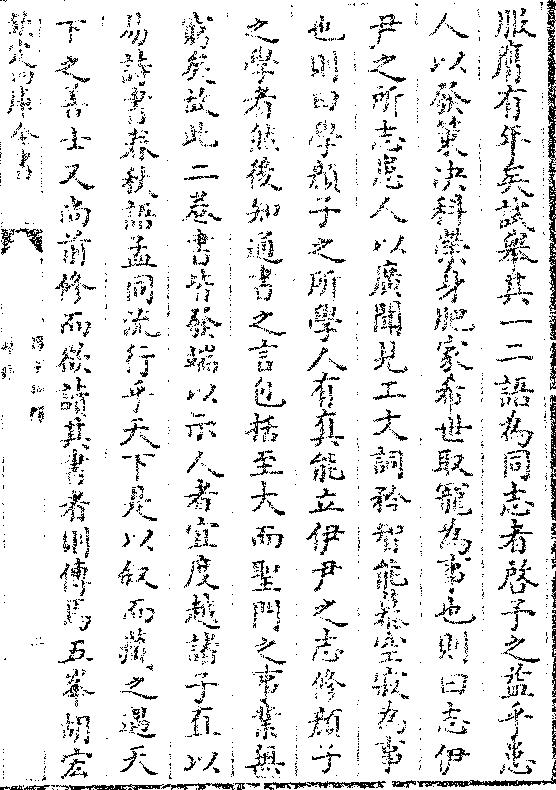 服膺有年矣試舉其一二語為同志者啓予之益乎患
人以發策决科榮身肥家希世取寵為事也則曰志伊
尹之所志患人以廣聞見工文詞矜智能慕空寂為事
也則曰學顔子之所學人有真能立伊尹之志修顔子
之學者然後知通書之言包括至大而聖門之事業無
窮矣故此一卷書皆發端以示人者宜度越諸子直以
易詩書春秋語孟同流行乎天下是以叙而藏之遇天
下之善士又尚前修而欲讀其書者則傳焉五峯胡宏
欽定四庫全書